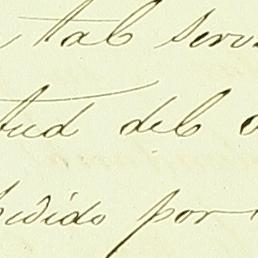 tal serv
tud del
pedido por